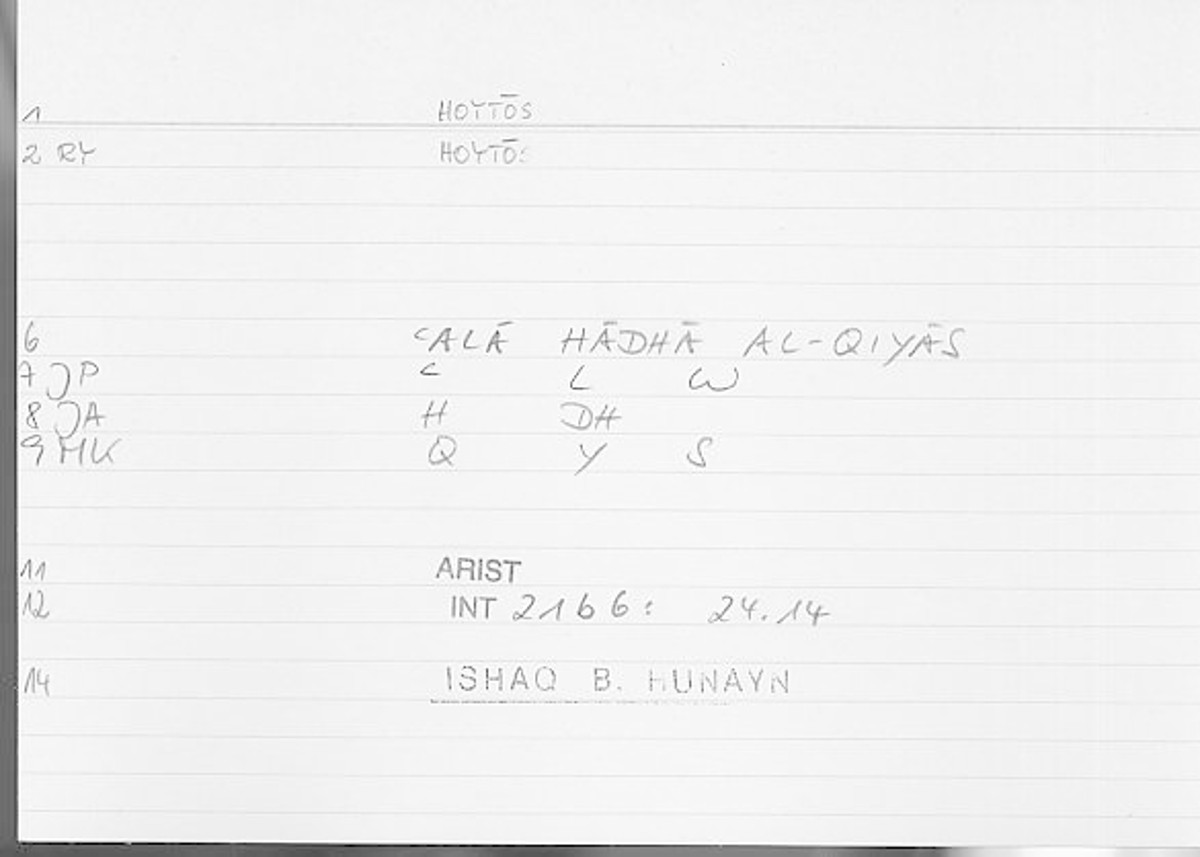 1 HOYTŌS
2 RY HOYTŌS
6 ʿALĀ HĀDHĀ AL-QIYĀS
7 JP ʿ L W
8 JA H DH
9 MK Q Y S
11 ARIST
12 INT 2166: 24.14
14 ISHAQ B. HUNAYN